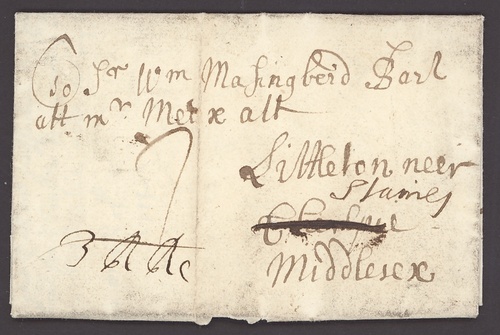 To Sr Wm Masingberd Bart
att mr Metx att
Littleton neer
Staines
Middlesex